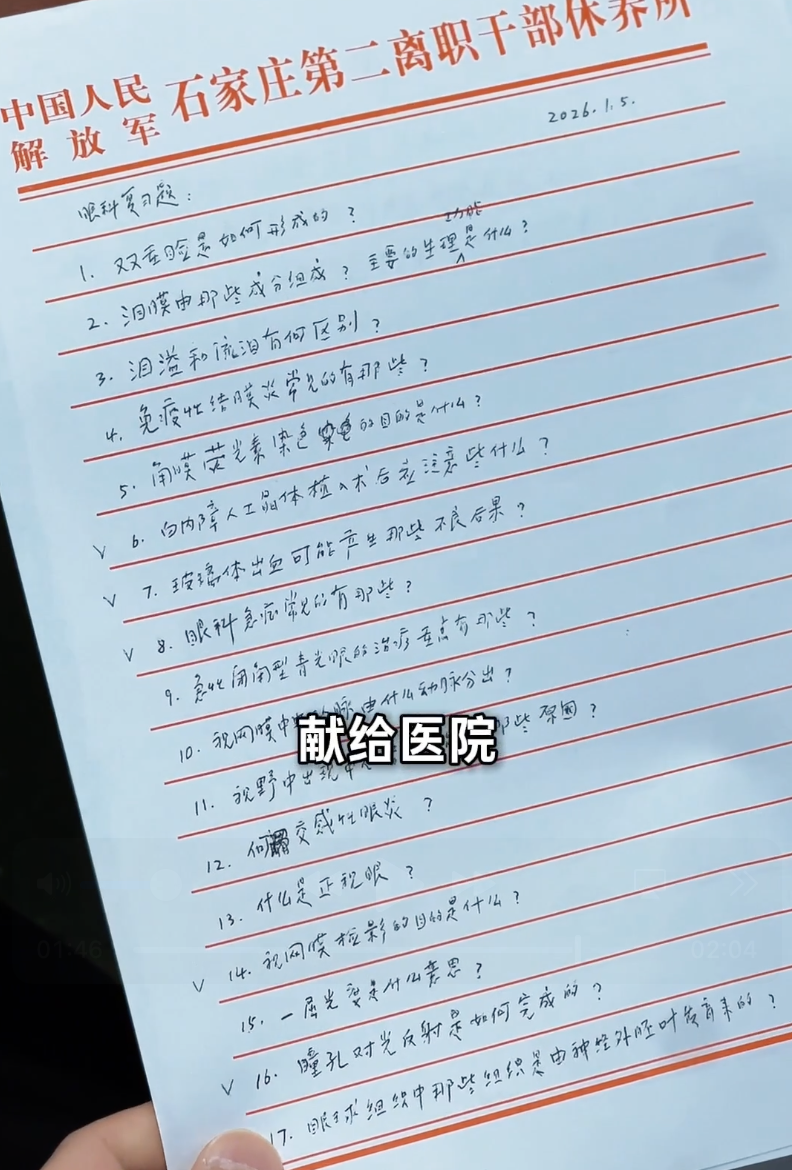 中国人民解放军 石家庄第二离职干部休养所
2026.1.5.
眼科复习题：
1. 双重睑是如何形成的？
2. 泪膜由那些成分组成？主要的生理功能是什么？
3. 泪溢和流泪有何区别？
4. 免疫性结膜炎常见的有那些？
5. 角膜荧光素染色的目的是什么？
√ 6. 白内障人工晶体植入术后应注意些什么？
√ 7. 玻璃体出血可能产生那些不良后果？
√ 8. 眼科急症常见的有那些？
9. 急性闭角型青光眼的治疗重点有那些？
10. 视网膜中央动脉由什么动脉分出？
11. 视野中出现中 那些原因？
献给医院
12. 何谓交感性眼炎？
13. 什么是正视眼？
√ 14. 视网膜检影的目的是什么？
15. 一屈光度是什么意思？
√ 16. 瞳孔对光反射是如何完成的？
17. 眼球组织中那些组织是由神经外胚叶发育来的？
01:46
02:04